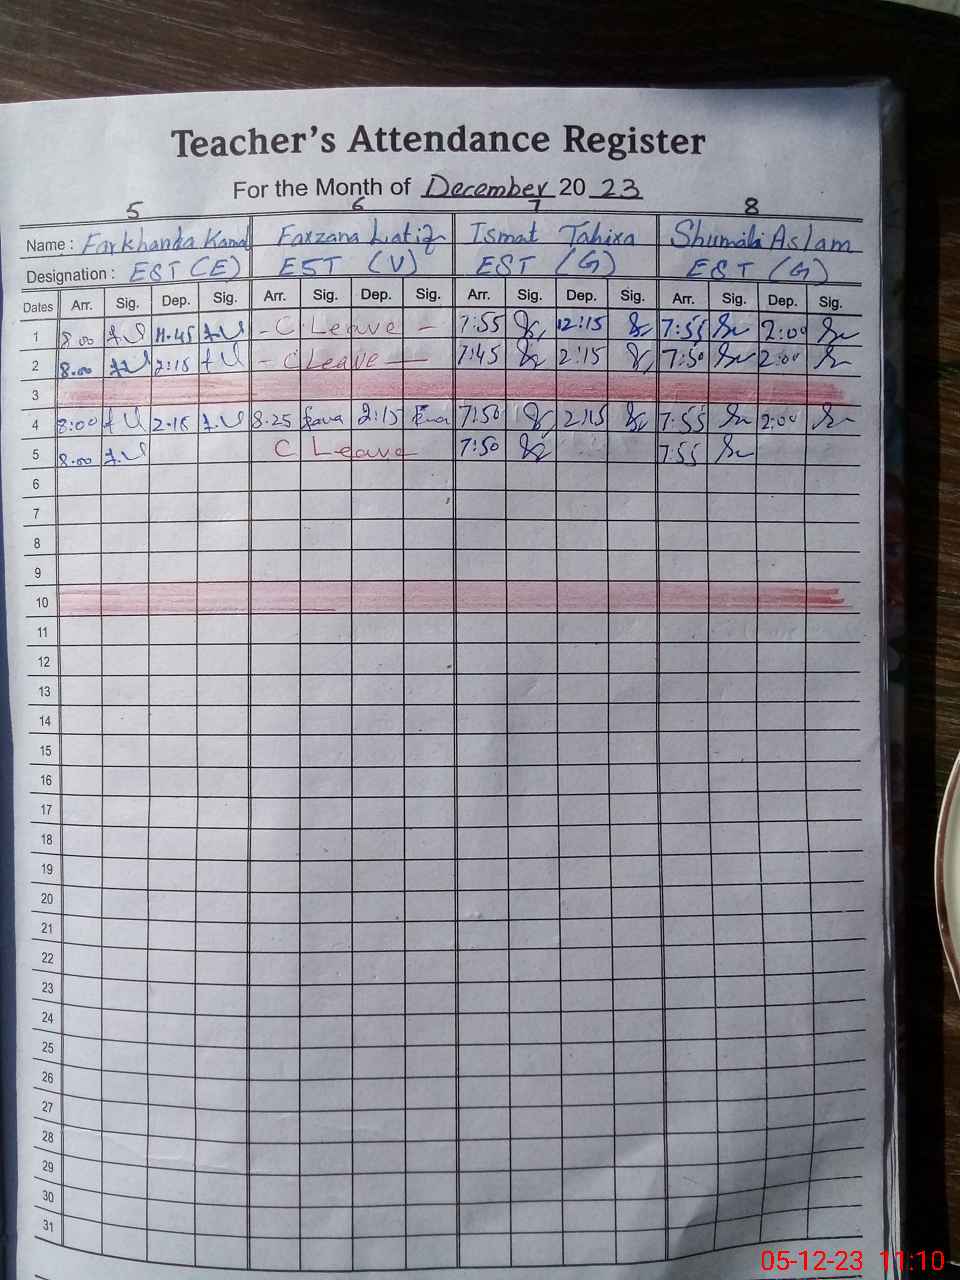 Teacher's Attendance Register
For the Month of December 20 23
5 6 7 8
Name : Farkhanda Kamal Farzana Latif Ismat Tahira Shumaila Aslam
Designation : EST (E) EST (V) EST (G) EST (G)
Dates Arr. Sig. Dep. Sig. Arr. Sig. Dep. Sig. Arr. Sig. Dep. Sig. Arr. Sig. Dep. Sig.
1 8.00 11.45 - C Leave - 7:55 12:15 7:55 2:00
2 8.00 2:15 - C Leave - 7:45 2:15 7:50 2:00
3
4 8:00 2.15 8.25 2:15 7:50 2:15 7:55 2:00
5 8.00 C Leave 7:50 7:55
6
7
8
9
10
11
12
13
14
15
16
17
18
19
20
21
22
23
24
25
26
27
28
29
30
31
05-12-23 11:10